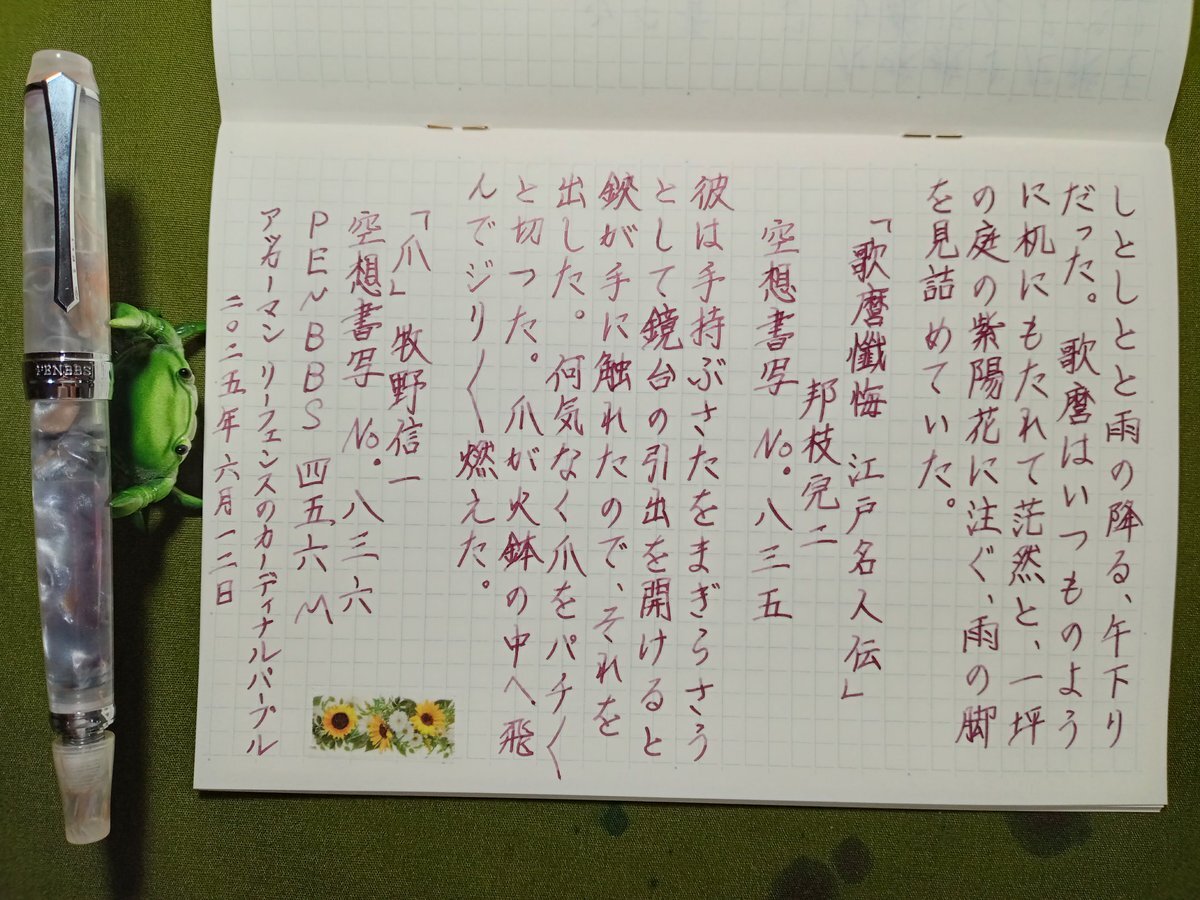 しとしとと雨の降る、午下り
だった。 歌麿はいつものよう
に机にもたれて茫然と、一坪
の庭の紫陽花に注ぐ、雨の脚
を見詰めていた。
「歌麿懺悔 江戸名人伝」
邦枝完二
空想書写 No.八三五
彼は手持ぶさたをまぎらさう
として鏡台の引出を開けると
鋏が手に触れたので、それを
出した。 何気なく爪をパチ〱
と切つた。爪が火鉢の中へ、飛
んでジリ〱燃えた。
「爪」 牧野信一
空想書写 No.八三六
PENBBS 四五六 M
アッカーマン リーフェンスのカーディナルパープル
二〇二五年 六月一二日
PENBBS